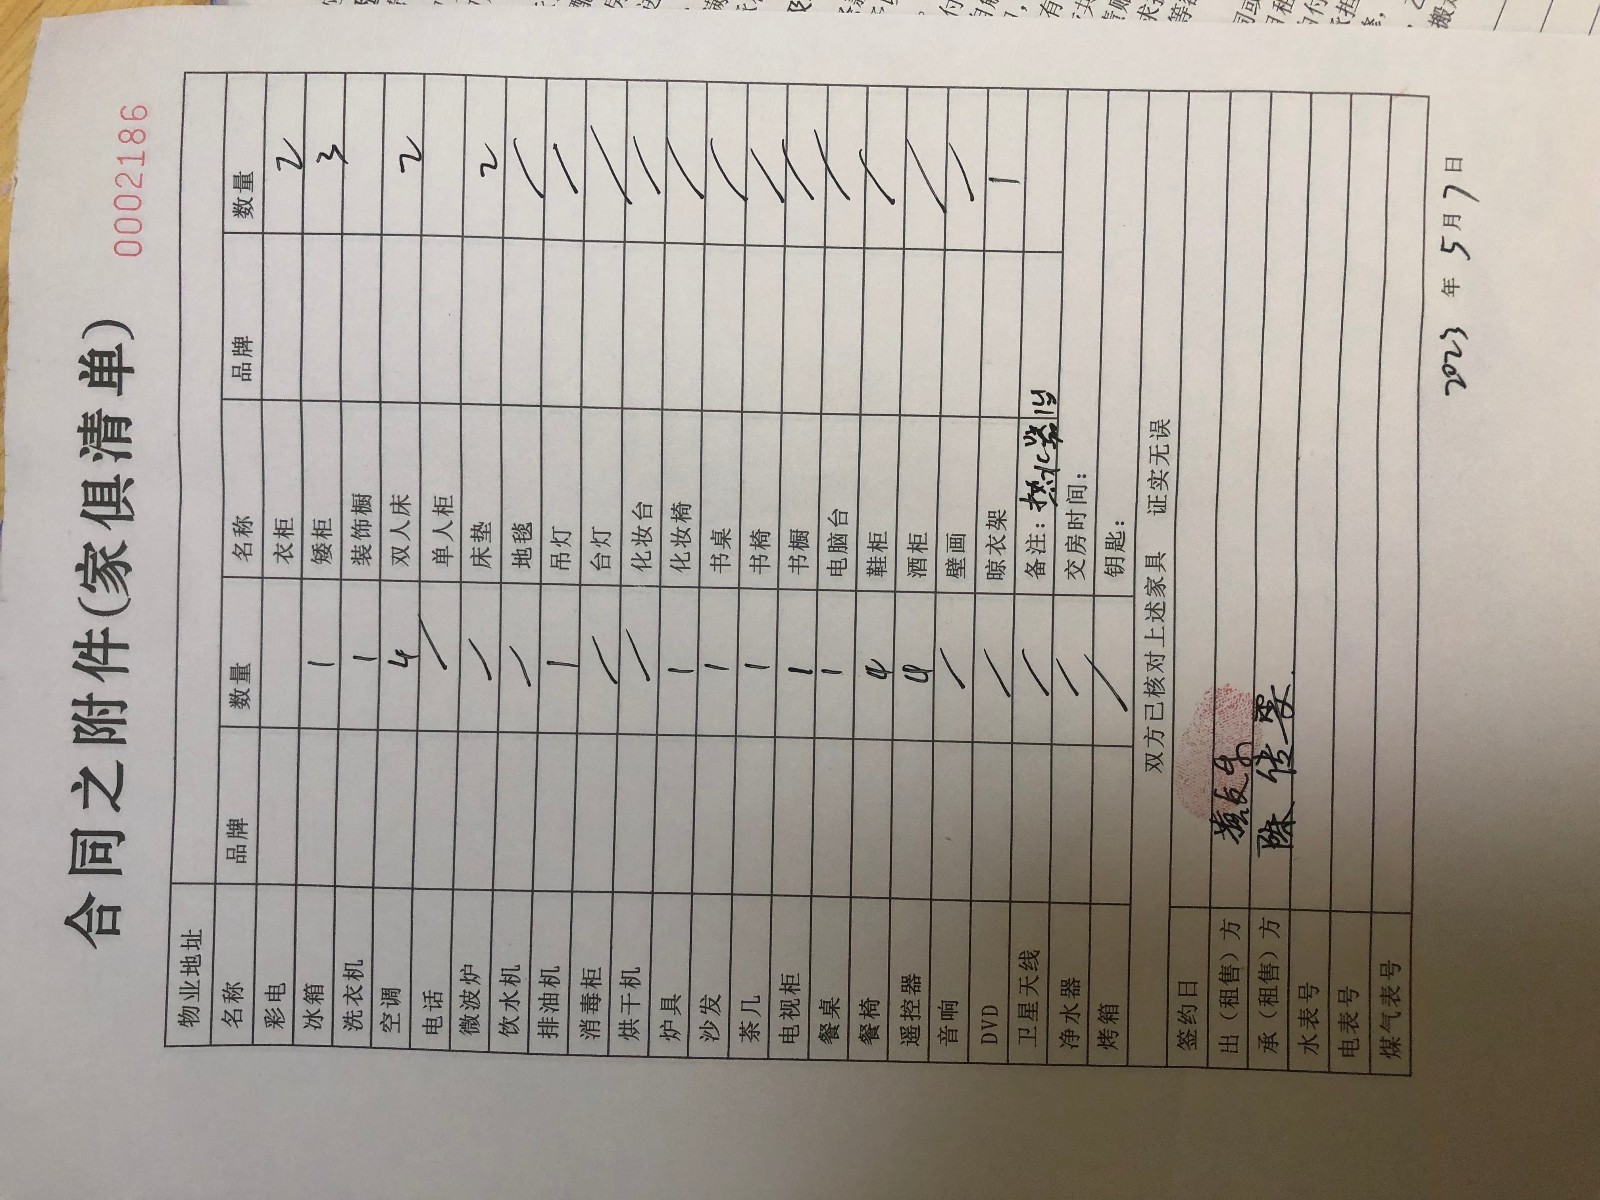 合同之附件(家俱清单)
0002186
物业地址
名称 品牌 数量 名称 品牌 数量
彩电 衣柜 2
冰箱 1 矮柜 3
洗衣机 1 装饰橱
空调 4 双人床 2
电话 / 单人柜
微波炉 / 床垫 2
饮水机 / 地毯 /
排油机 1 吊灯 /
消毒柜 / 台灯 /
烘干机 / 化妆台 /
炉具 1 化妆椅 /
沙发 1 书桌 /
茶几 1 书椅 /
电视柜 1 书橱 /
餐桌 1 电脑台 /
餐椅 4 鞋柜 /
遥控器 4 酒柜 /
音响 / 壁画 /
DVD / 晾衣架 1
卫星天线 / 备注: 热水器1台
净水器 / 交房时间:
烤箱 / 钥匙:
双方已核对上述家具 证实无误
签约日
出(租售)方
承(租售)方 陈
水表号
电表号
煤气表号
2023 年 5 月 7 日